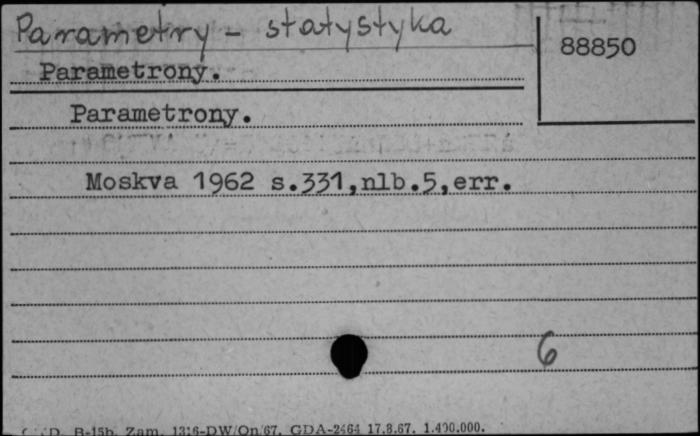 Parametry - statystyka
88850
Parametrony.
Parametrony.
Moskva 1962 s.331,nlb.5,err.
6
D. B-15b. Zam. 1316-DW/On/67. GDA-2464 17.8.67. 1.400.000.